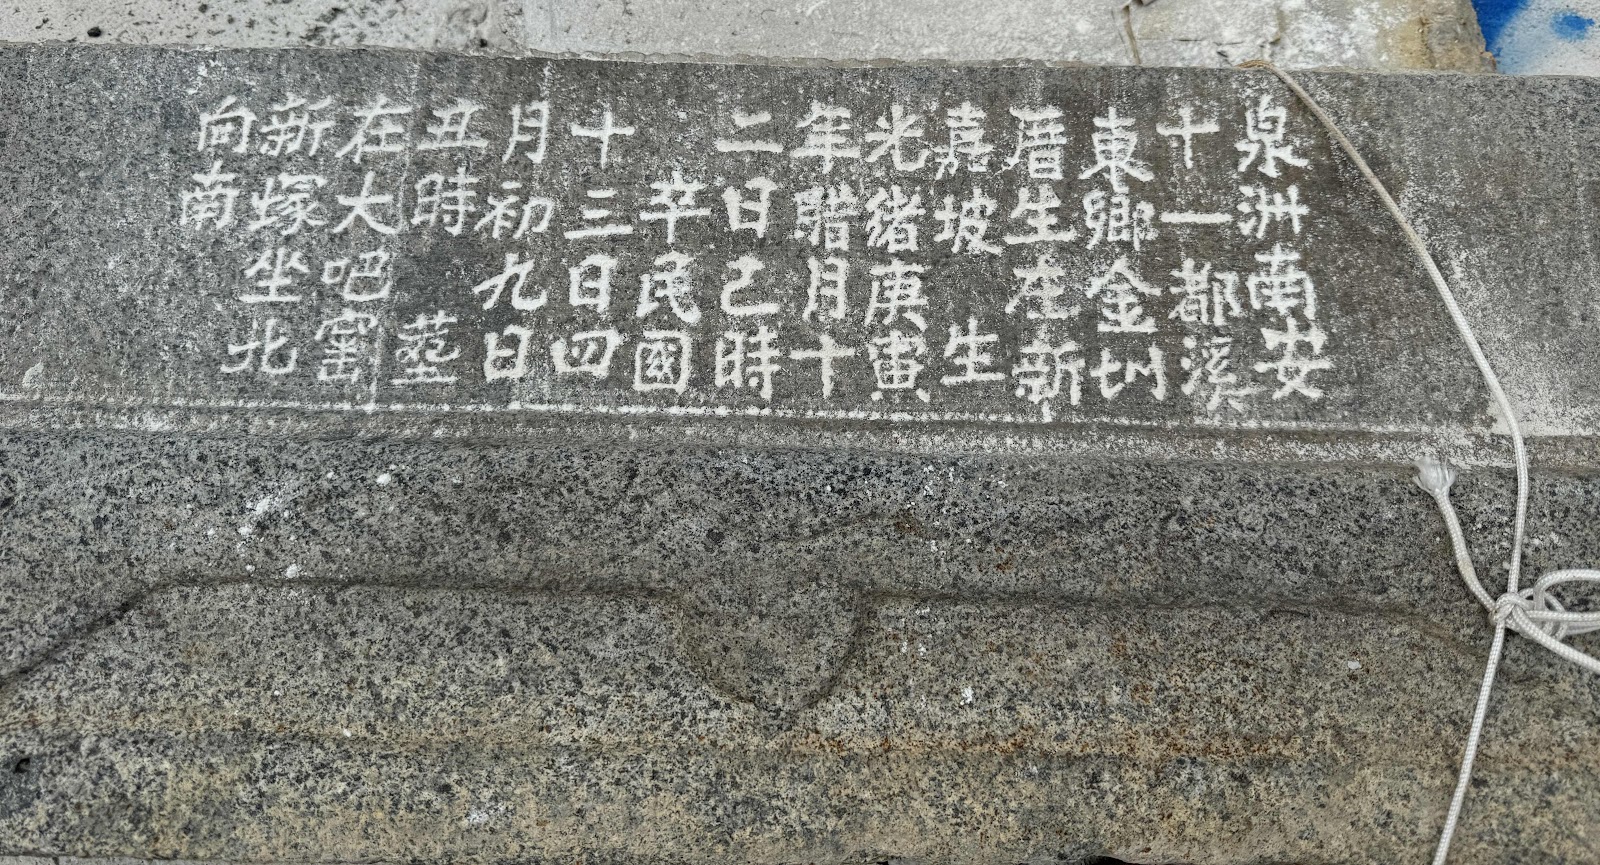 泉洲南安
十一都溪
東鄉金圳
厝生在新
嘉坡 生
光緒庚寅
年腊月十
二日己時
卒民國
十三日四
月初九日
丑時 塟
在大吧窰
新塚坐北
向南